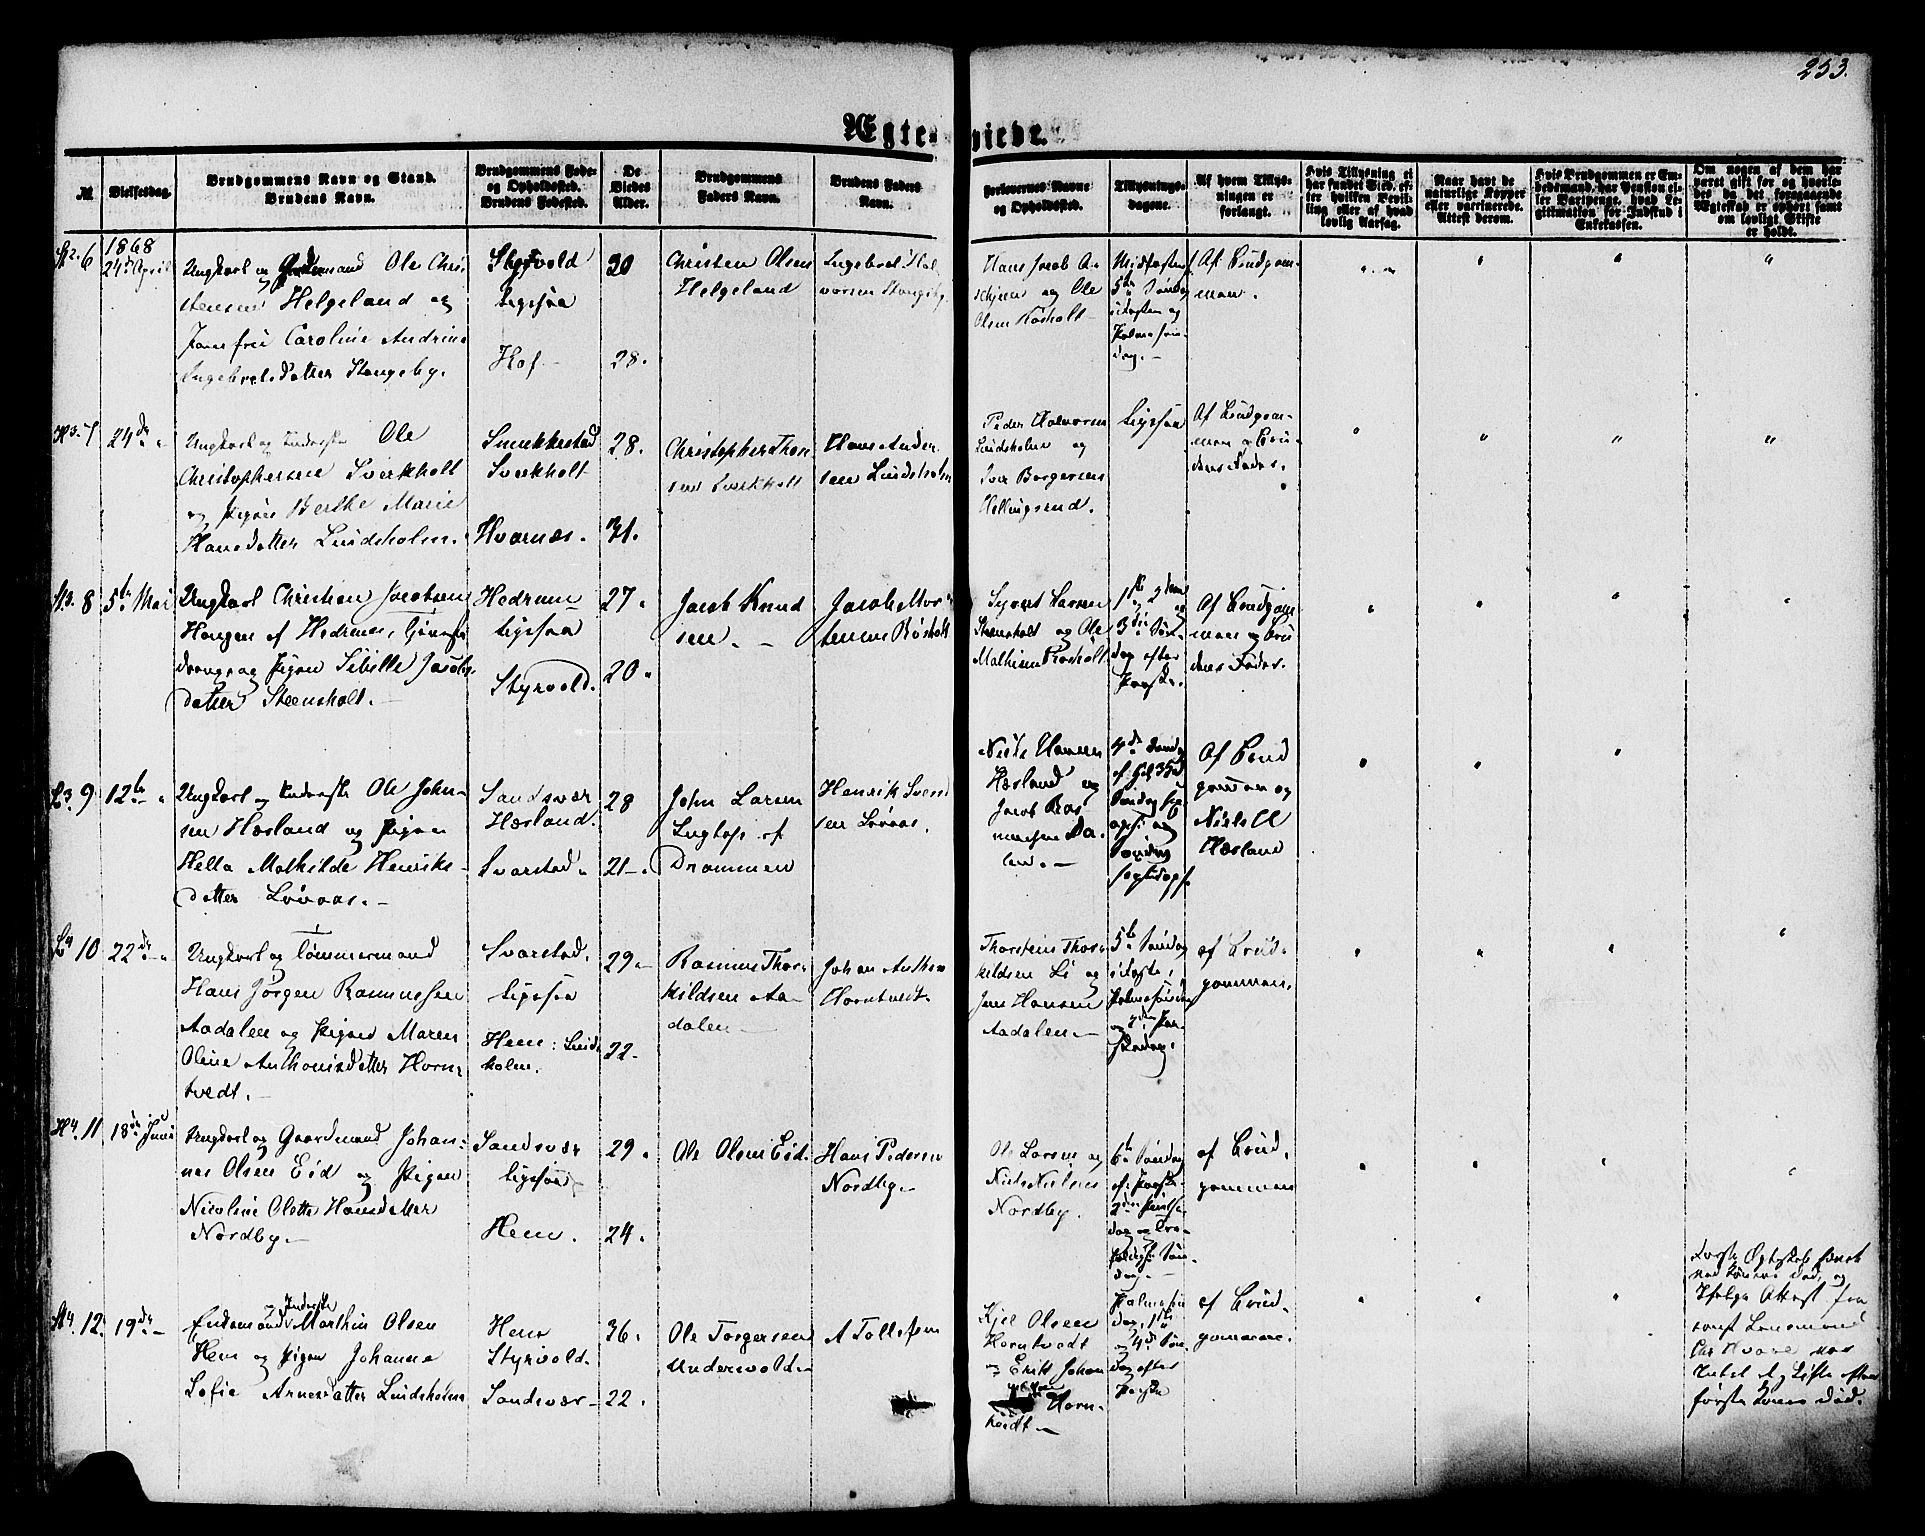 253.
Ægteviede.
№
Vielsesdag.
Brudgommens Navn og Stand.
Brudens Navn.
Brudgommens Føde-
og Opholdssted.
Brudens Fødested.
De
Viedes
Alder.
Brudgommens
Faders Navn.
Brudens Faders
Navn.
Forlovernes Navne
og Opholdssted.
Tillysnings-
dagene.
Af hvem Tillys-
ningen er
forlangt.
Hvis Tillysning ei
har fundet Sted, ef-
ter hvilken Bevil-
ling eller af hvad
lovlig Aarsag.
Naar havt de
naturlige Kopper
eller vaccinerede.
Attest derom.
Hvis Brudgommen er Em-
bedsmand, har Pension el-
ler Vartpenge, hvad Le-
gitimation for Indskud i
Enkekassen.
Om nogen af dem har
været gift før og hvorle-
des da det foregaaende
Ægteskab er ophørt samt
om lovligt Skifte
er holdt.
6
1868
24de April
Ungkarl og Gaardmand Ole Chri-
stensen Helgeland og
Jomfru Caroline Andrine
Ingebretsdatter Stangeby.
Styrvold
ligesaa
Hof
30
28.
Christen Olsen
Helgeland
Ingebret Hal-
vorsen Stangeby
Hans Jacob
og Ole
Olsen Røsholt
Midfaste
5te Søndag
i Fasten og
Palmesøn-
dag.
Af Brudgom-
men.
7
24de
Ungkarl og Inderste Ole
Christophersen Sverkholt
og Pigen Berthe Marie
Hansdatter Lindsholm.
Smukkestad
Sverkholt
Hvarnæs.
28.
31.
Christopher Thor-
sen Sverkholt
Hans Ander-
sen Lindsholm
Peder Halvorsen
Lindsholm og
Iver Borgersen
Hellingsrud.
ligesaa
Af Brudgom-
men og Bru-
dens Fader.
8
5te Mai
Ungkarl Christian Jacobsen
Haugen af Hedrum, Tjeneste-
dreng og Pigen Sibille Jacobs-
datter Steensholt.
Hedrum
ligesaa
Styrvold.
27.
20.
Jacob Knud-
sen.
Jacob Mor-
tensen Røsholt
Syvert Larsen
Steensholt og Ole
Mathisen Røsholt
1ste 2den og
3die Søn-
dag efter
Paaske.
Af Brudgom-
men og Bru-
dens Fader.
9
12te
Ungkarl og Inderste Ole John-
sen Hæsland og Pigen
Hella Mathilde Henriks-
datter Løvaas.
Sandsvær
Hæsland.
Svarstad.
28
21.
John Larsen
af
Drammen
Henrik Svend-
sen Løvaas.
Niels Hansen
Hæsland og
Jacob Ras-
mussen Da-
len.
4de Søndag
Af Brud-
gommen og
Niels
Hæsland
10
22de
Ungkarl og Tømmermand
Hans Jørgen Rasmussen
Aadalen og Pigen Maren
Oline Anthonisdatter Horn-
tvedt.
Svarstad.
ligesaa
Hem: Lind-
holm.
29.
22.
Rasmus Thor-
kildsen Aa-
dalen
Johan Anthon
Horntvedt.
Thorstein Thor-
kildsen Li og
Jens Hansen
Aadalen.
5te Søndag
i Faste,
Palmesøndag
og 2den Paa-
skedag.
af Brud-
gommen.
11
18de Juni
Ungkarl og Gaardmand Johan-
nes Olsen Eid og Pigen
Nicoline Olette Hansdatter
Nordby.
Sandsvær
ligesaa
Hem.
29.
24.
Ole Olsen Eid.
Hans Pedersen
Nordby.
Ole Larsen og
Niels Nielsen
Nordby.
6te Søndag
ef. Paaske
2den Pintse-
dag og Tre-
foldigh. Søn-
dag.
af Brud-
gommen
12.
19de
Enkemand og Inderste Mathis Olsen
Hem og Pigen Johanne
Sofie Arnesdatter Lindsholm
Hem
Styrvold.
Sandsvær
36.
22.
Ole Torgersen
Undersvold
A Tollefsen
Kjel Olsen
Horntvedt
og Erik Johan-
nessen Horn-
tvedt
Palmesøn-
dag, 1ste
og 4de Søn-
dag efter
Paaske
af Brud-
gommen.
første Konens Død.